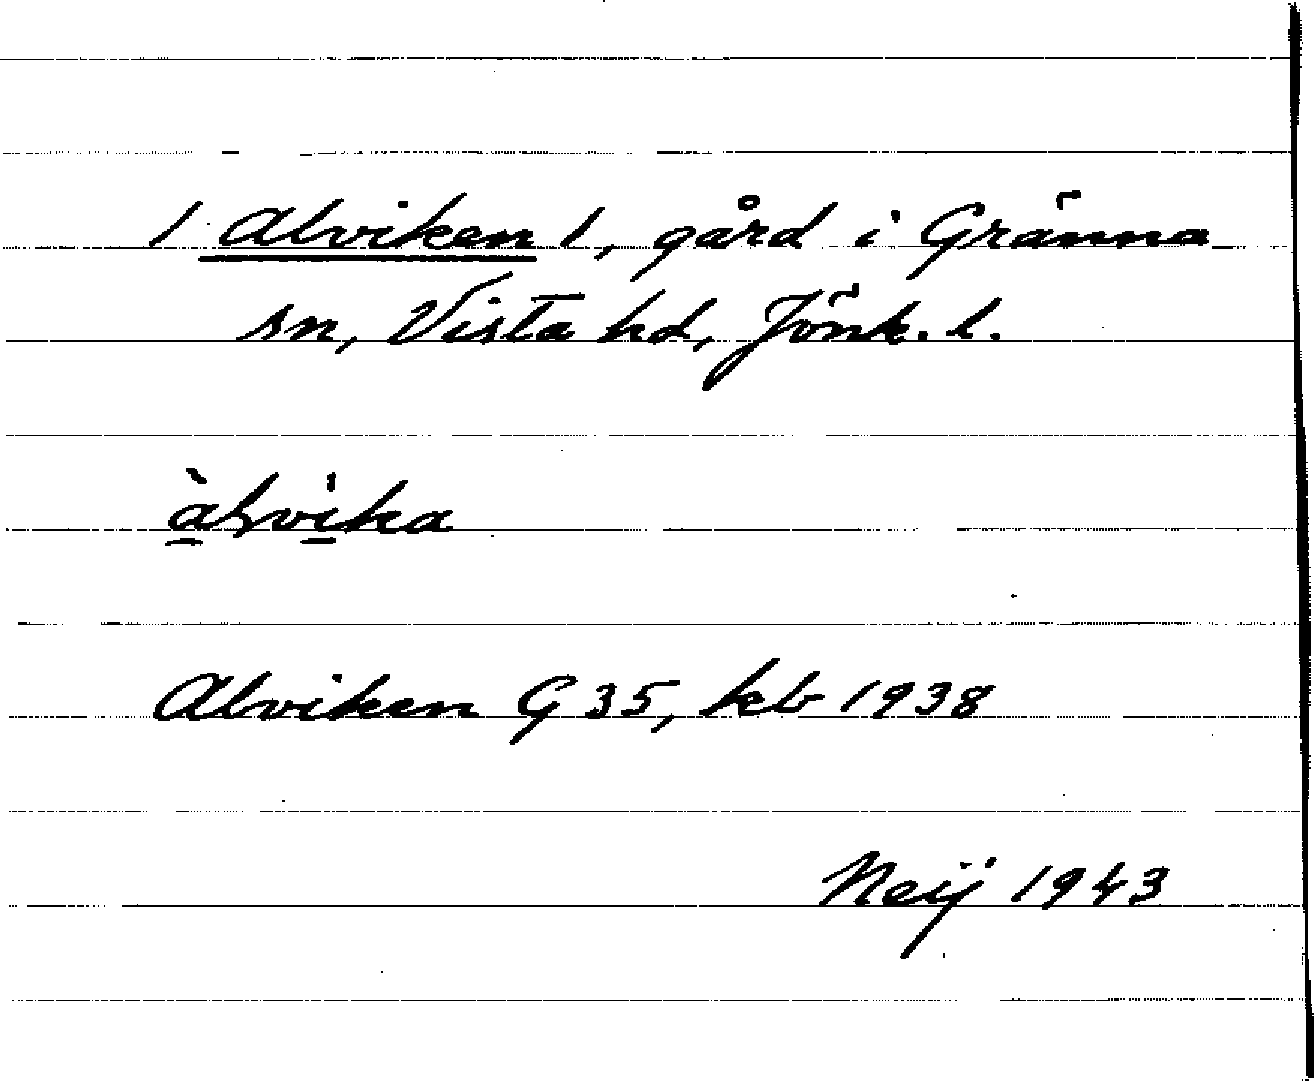 1 Alviken 1, gård i Gränna
sn, Vista hd, Jönk. l.
àlvika
Alviken G 35, kb 1938
Neij 1943